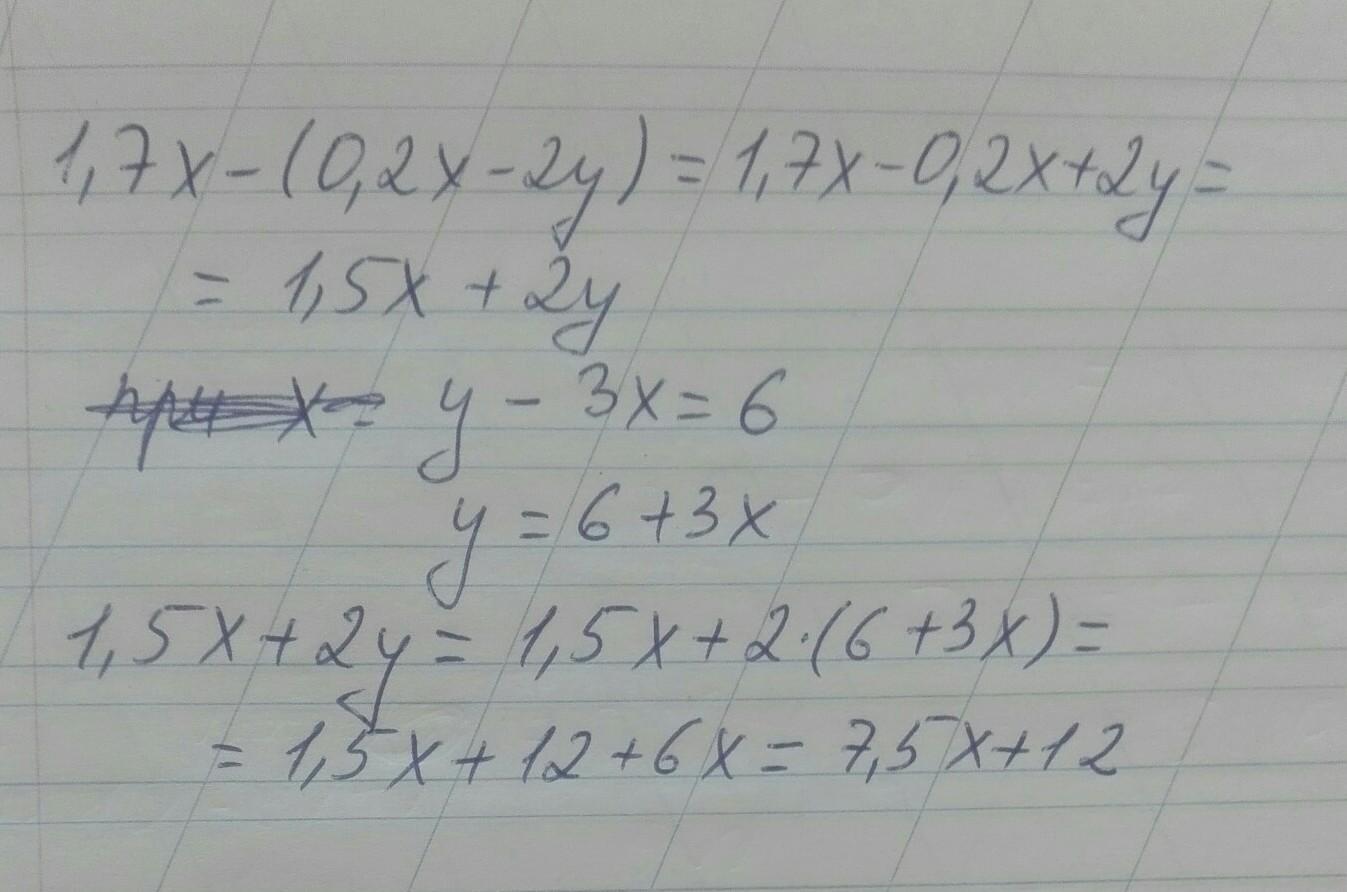 1,7x-(0,2x-2y)=1,7x-0,2x+2y=
= 1,5x+2y
при x= y - 3x=6
y =6+3x
1,5x+2y= 1,5x+2·(6+3x)=
= 1,5x+12+6x= 7,5x+12